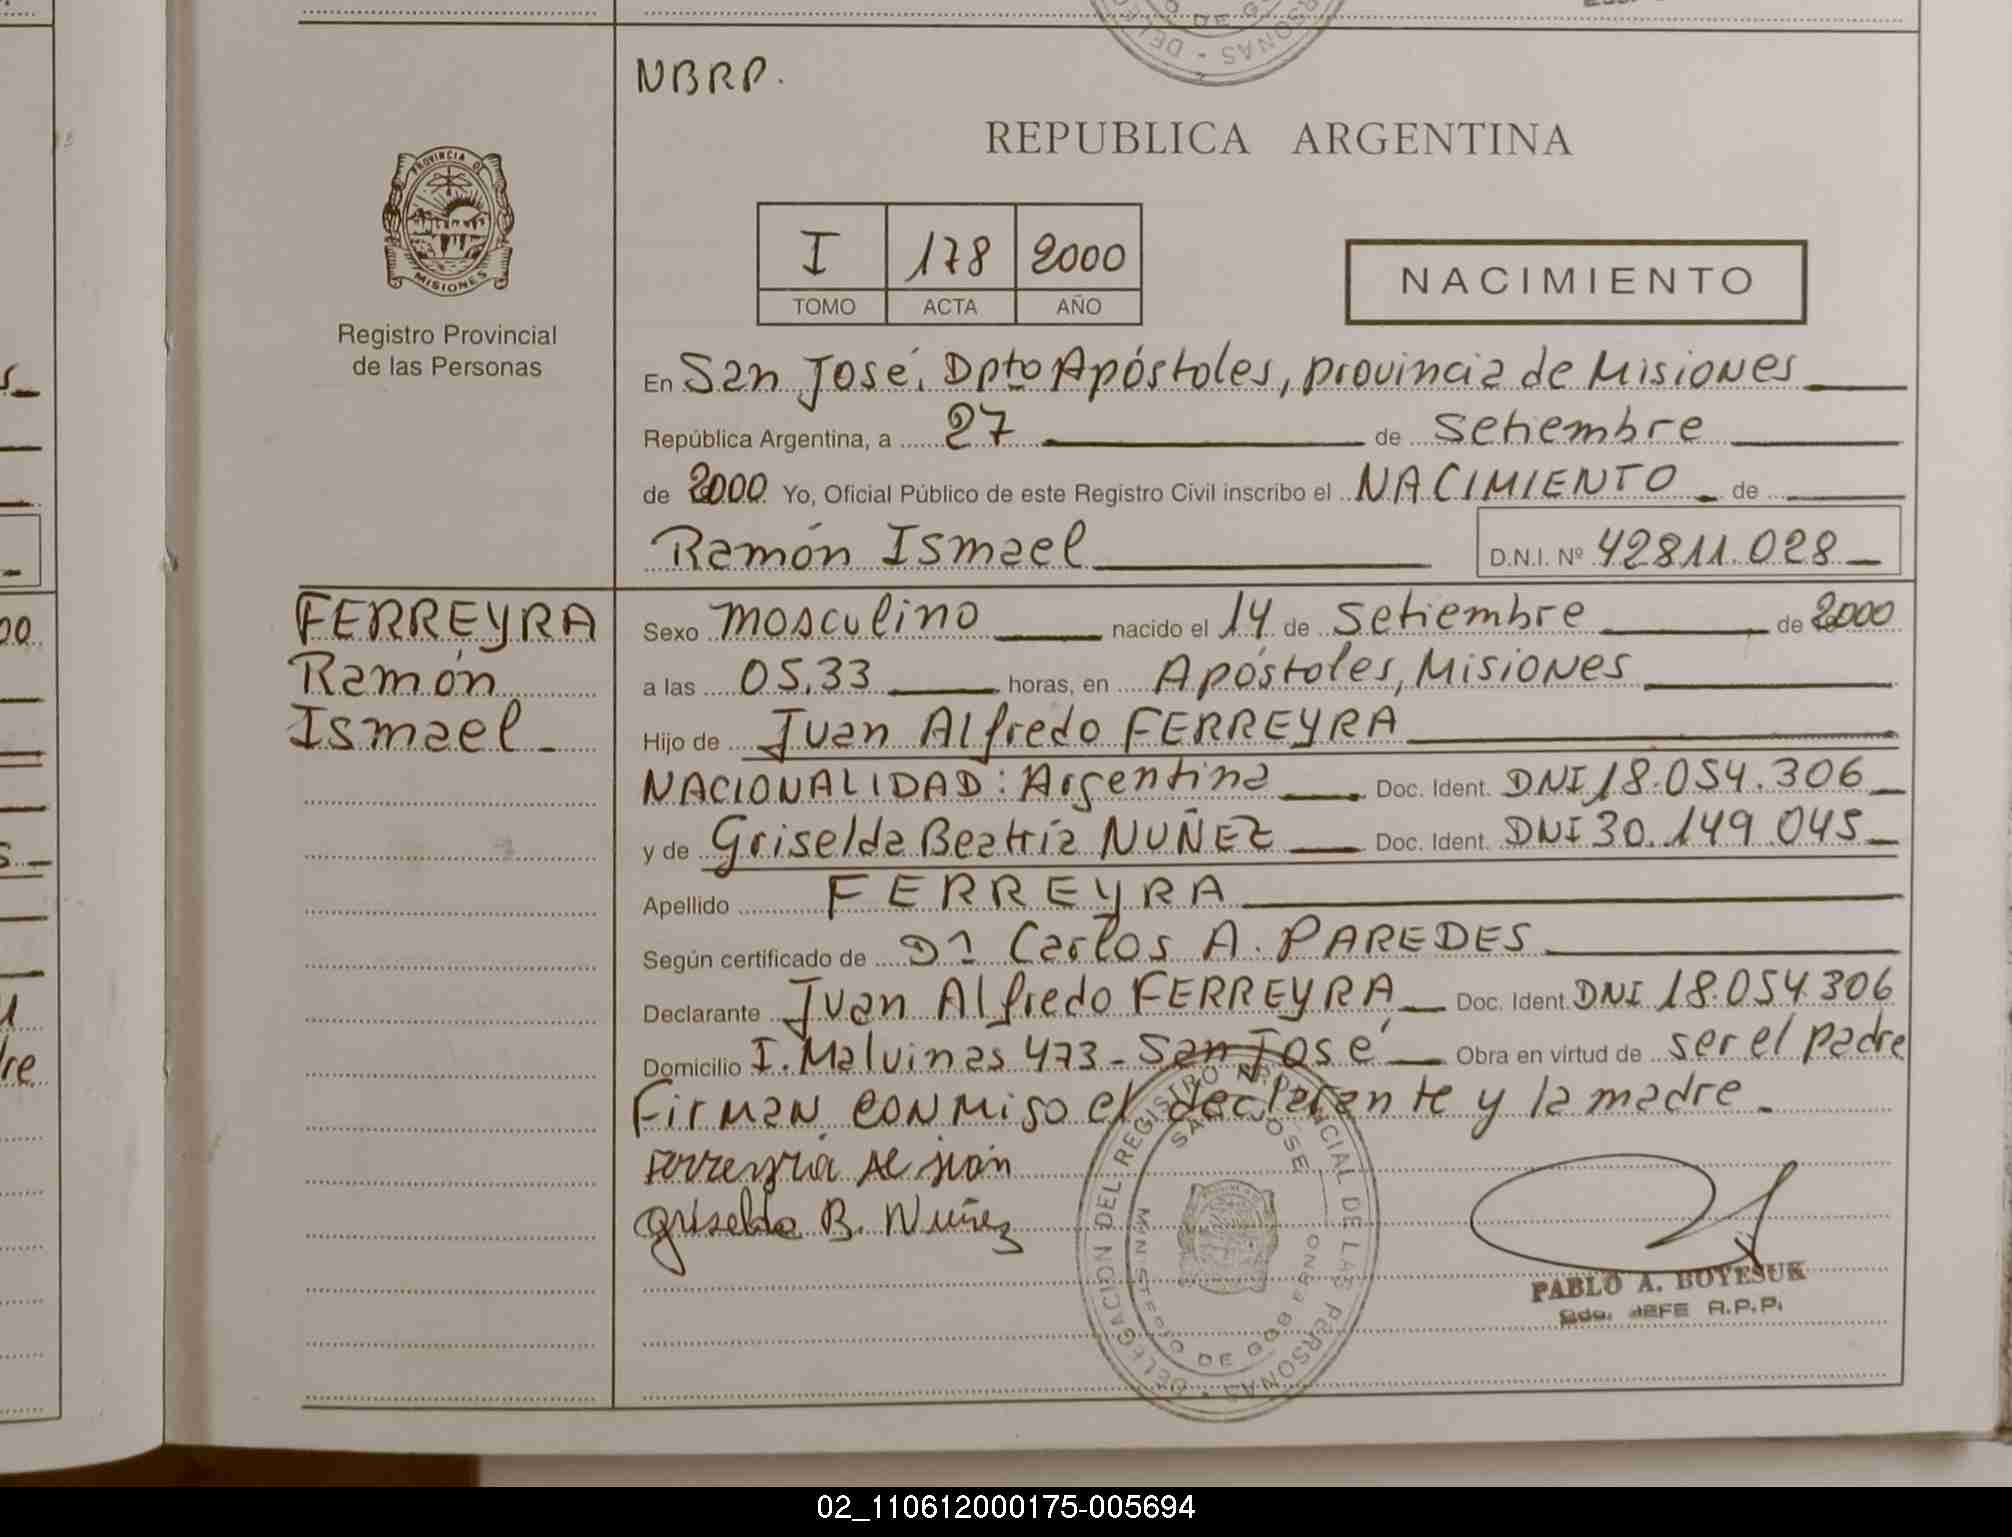 NBRP.
REPUBLICA ARGENTINA
PROVINCIA DE
MISIONES
Registro Provincial
de las Personas
I 178 2000
TOMO ACTA AÑO
NACIMIENTO
En San José, Dpto Apóstoles, provincia de Misiones
República Argentina, a 27 de setiembre
de 2000 Yo, Oficial Público de este Registro Civil inscribo el NACIMIENTO de
Ramón Ismael D.N.I. Nº 42811.028
FERREYRA
Ramón
Ismael
Sexo masculino nacido el 14 de setiembre de 2000
a las 05.33 horas, en Apóstoles, Misiones
Hijo de Juan Alfredo FERREYRA
NACIONALIDAD: Argentina Doc. Ident. DNI 18.054.306
y de Griselda Beatríz NUÑEZ Doc. Ident. DNI 30.149.045
Apellido FERREYRA
Según certificado de Dr Carlos A. PAREDES
Declarante Juan Alfredo FERREYRA Doc. Ident. DNI 18.054.306
Domicilio I. Malvinas 473 - San José Obra en virtud de ser el padre
Firman conmigo el declarante y la madre.
Ferreyra Al juan
Griselda B. Nuñez
DELEGACION DEL REGISTRO PROVINCIAL DE LAS PERSONAS
SAN JOSE
MINISTERIO DE GOBIERNO
PABLO A. BOYESUK
JEFE R.P.P.
02_110612000175-005694